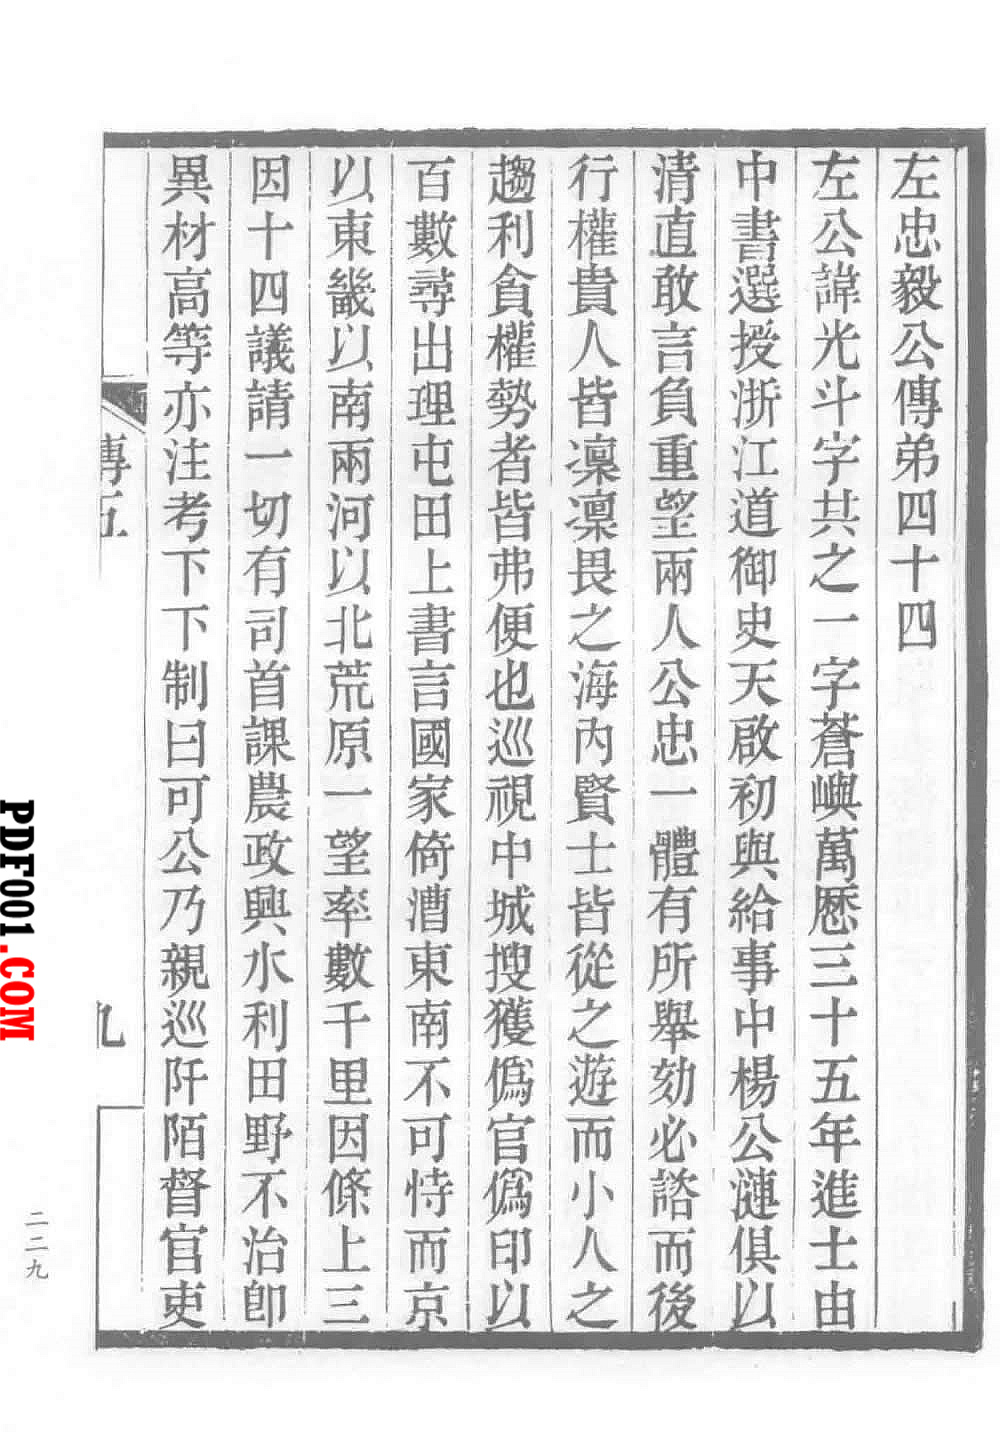 左忠毅公傳弟四十四
左公諱光斗字共之一字蒼嶼萬厯三十五年進士由
中書選授浙江道御史天啟初與給事中楊公漣俱以
清直敢言負重望兩人公忠一體有所舉劾必諮而後
行權貴人皆凜凜畏之海內賢士皆從之遊而小人之
趨利貪權勢者皆弗便也巡視中城搜獲僞官僞印以
百數尋出理屯田上書言國家倚漕東南不可恃而京
以東畿以南兩河以北荒原一望率數千里因條上三
因十四議請一切有司首課農政興水利田野不治卽
異材高等亦注考下下制曰可公乃親巡阡陌督官吏
傳五
九
二二九
PDF001.COM